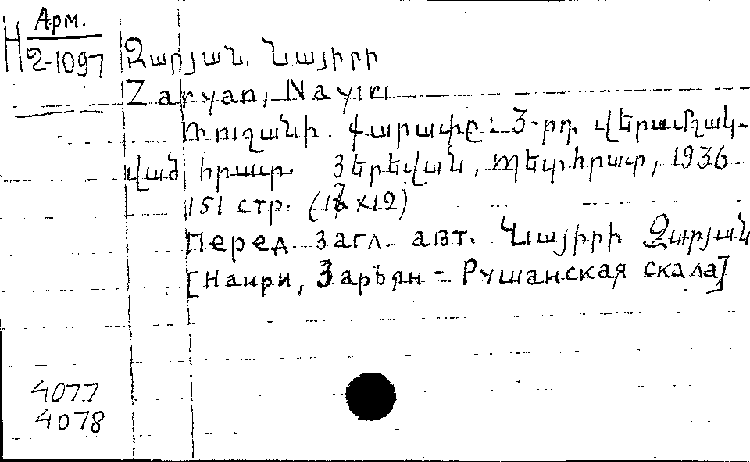 Арм.
H 2-1097
Զարյան, Նայիրի
Zaryan, Nayiri
Ռուշանի քարափը. 3-րդ վերամշակ-
ված հրատ. Յերեվան, Պետհրատ, 1936
151 стр. (17 x12)
Перед загл. авт. Նայիրի Զարյան
[Наири, Заръян - Рушанская скала]
4077
4078